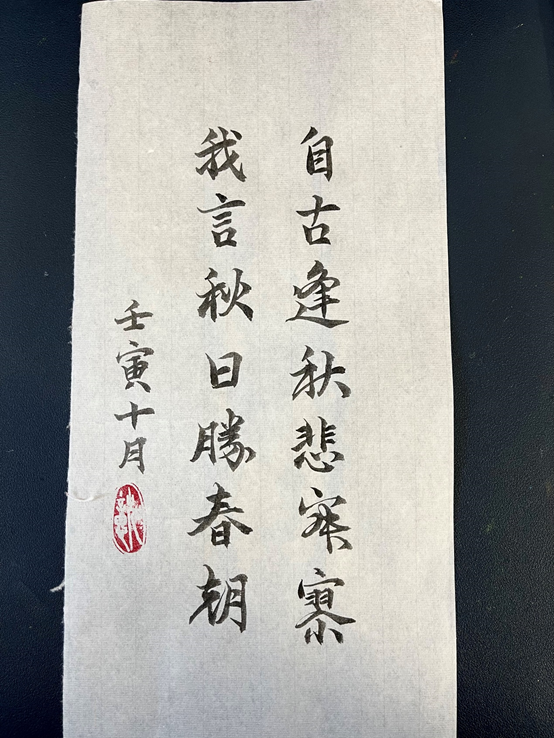 自古逢秋悲寂寥
我言秋日勝春朝
壬寅十月